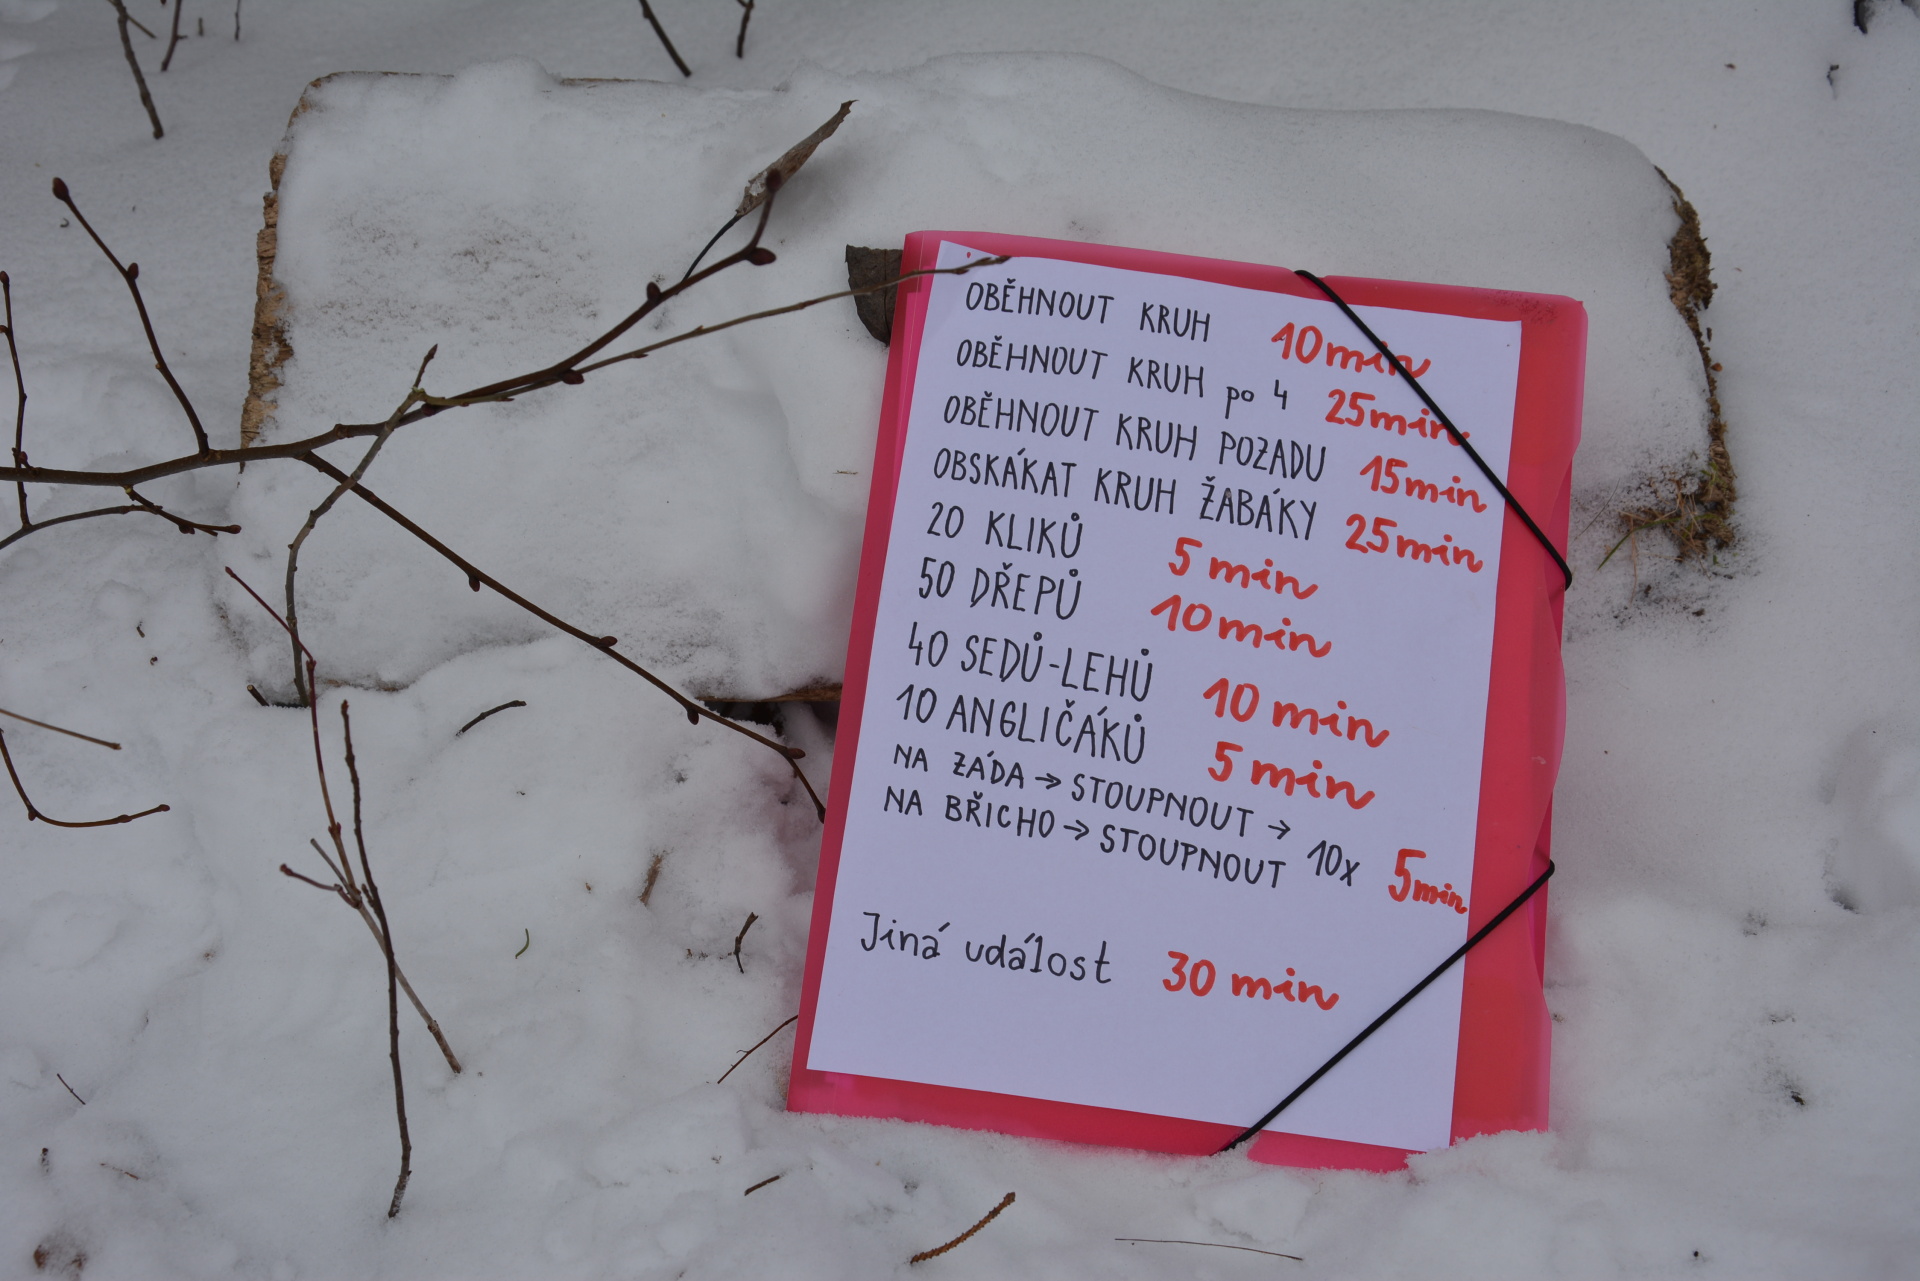 OBĚHNOUT KRUH 10min
OBĚHNOUT KRUH po 4 25min
OBĚHNOUT KRUH POZADU 15min
OBSKÁKAT KRUH ŽABÁKY 25min
20 KLIKŮ 5 min
50 DŘEPŮ 10 min
40 SEDŮ-LEHŮ 10 min
10 ANGLIČÁKŮ 5 min
NA ZÁDA → STOUPNOUT →
NA BŘICHO → STOUPNOUT 10x 5min
Jiná událost 30 min